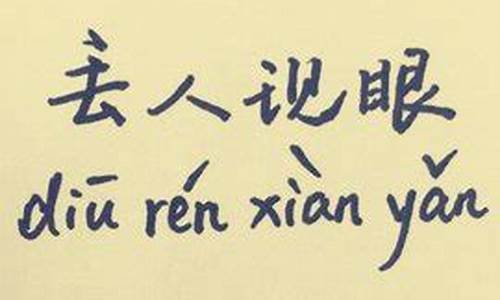 丢人现眼
diū rén xiàn yǎn